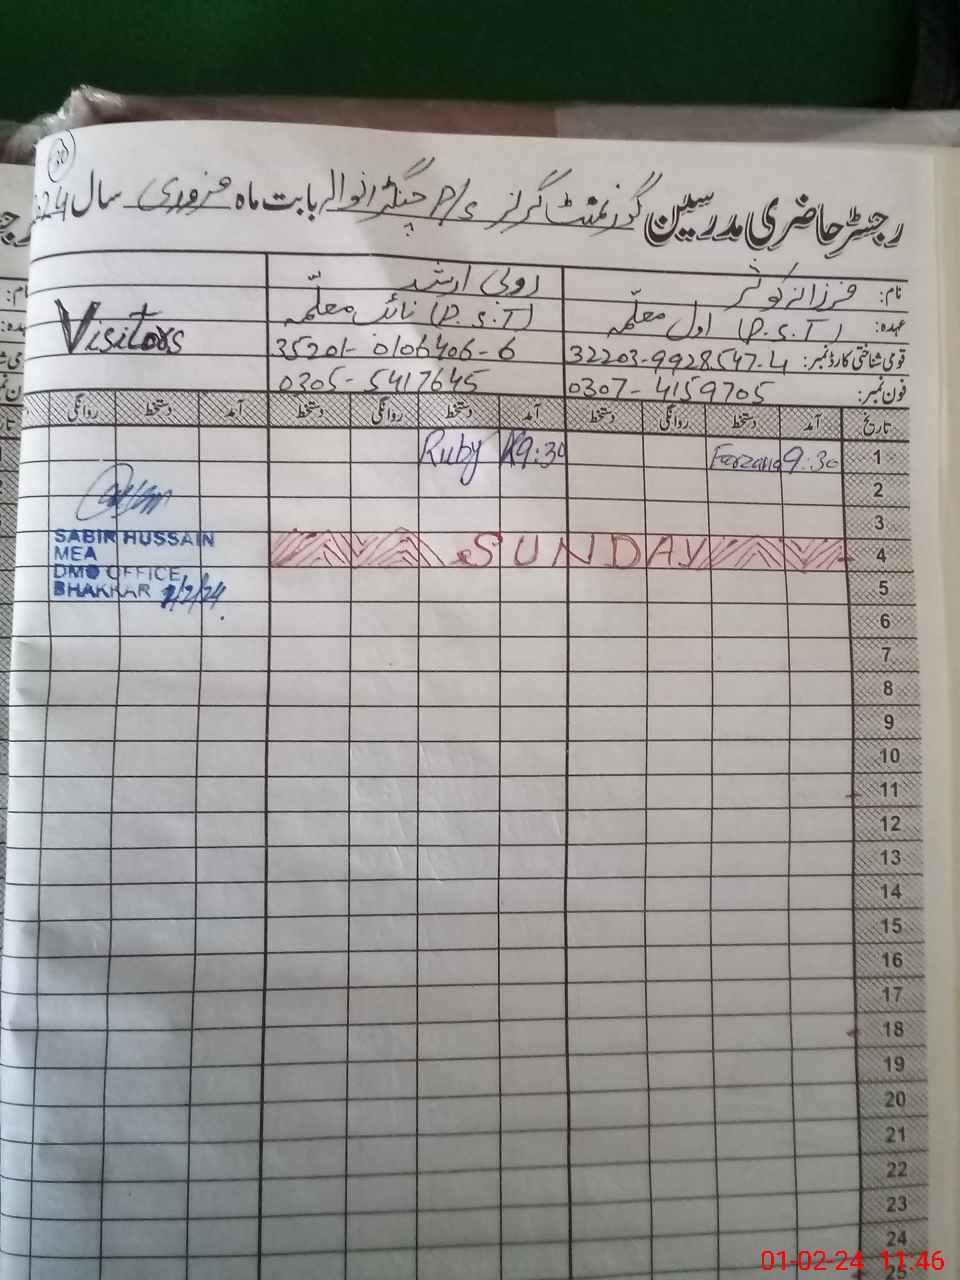 20
رجسٹر حاضری مدرسین گورنمنٹ گرلز P/S بابت ماہ فروری سال 24
نام: فرزانہ کوثر روبی ارشد
عہدہ: اول معلمہ (P.S.T) نائب معلمہ (P.S.T) Visitors
قومی شناختی کارڈ نمبر: 32203-9928547-4 35201-0106406-6
فون نمبر: 0307-4159705 0305-5417645
تاریخ آمد دستخط روانگی دستخط آمد دستخط روانگی دستخط آمد دستخط روانگی
1 9:30 Farzana 9:30 Ruby
2
3
4 SUNDAY
5
SABIR HUSSAIN
MEA
DMO OFFICE
BHAKKAR 1/2/24
6
7
8
9
10
11
12
13
14
15
16
17
18
19
20
21
22
23
24
25
01-02-24 11:46